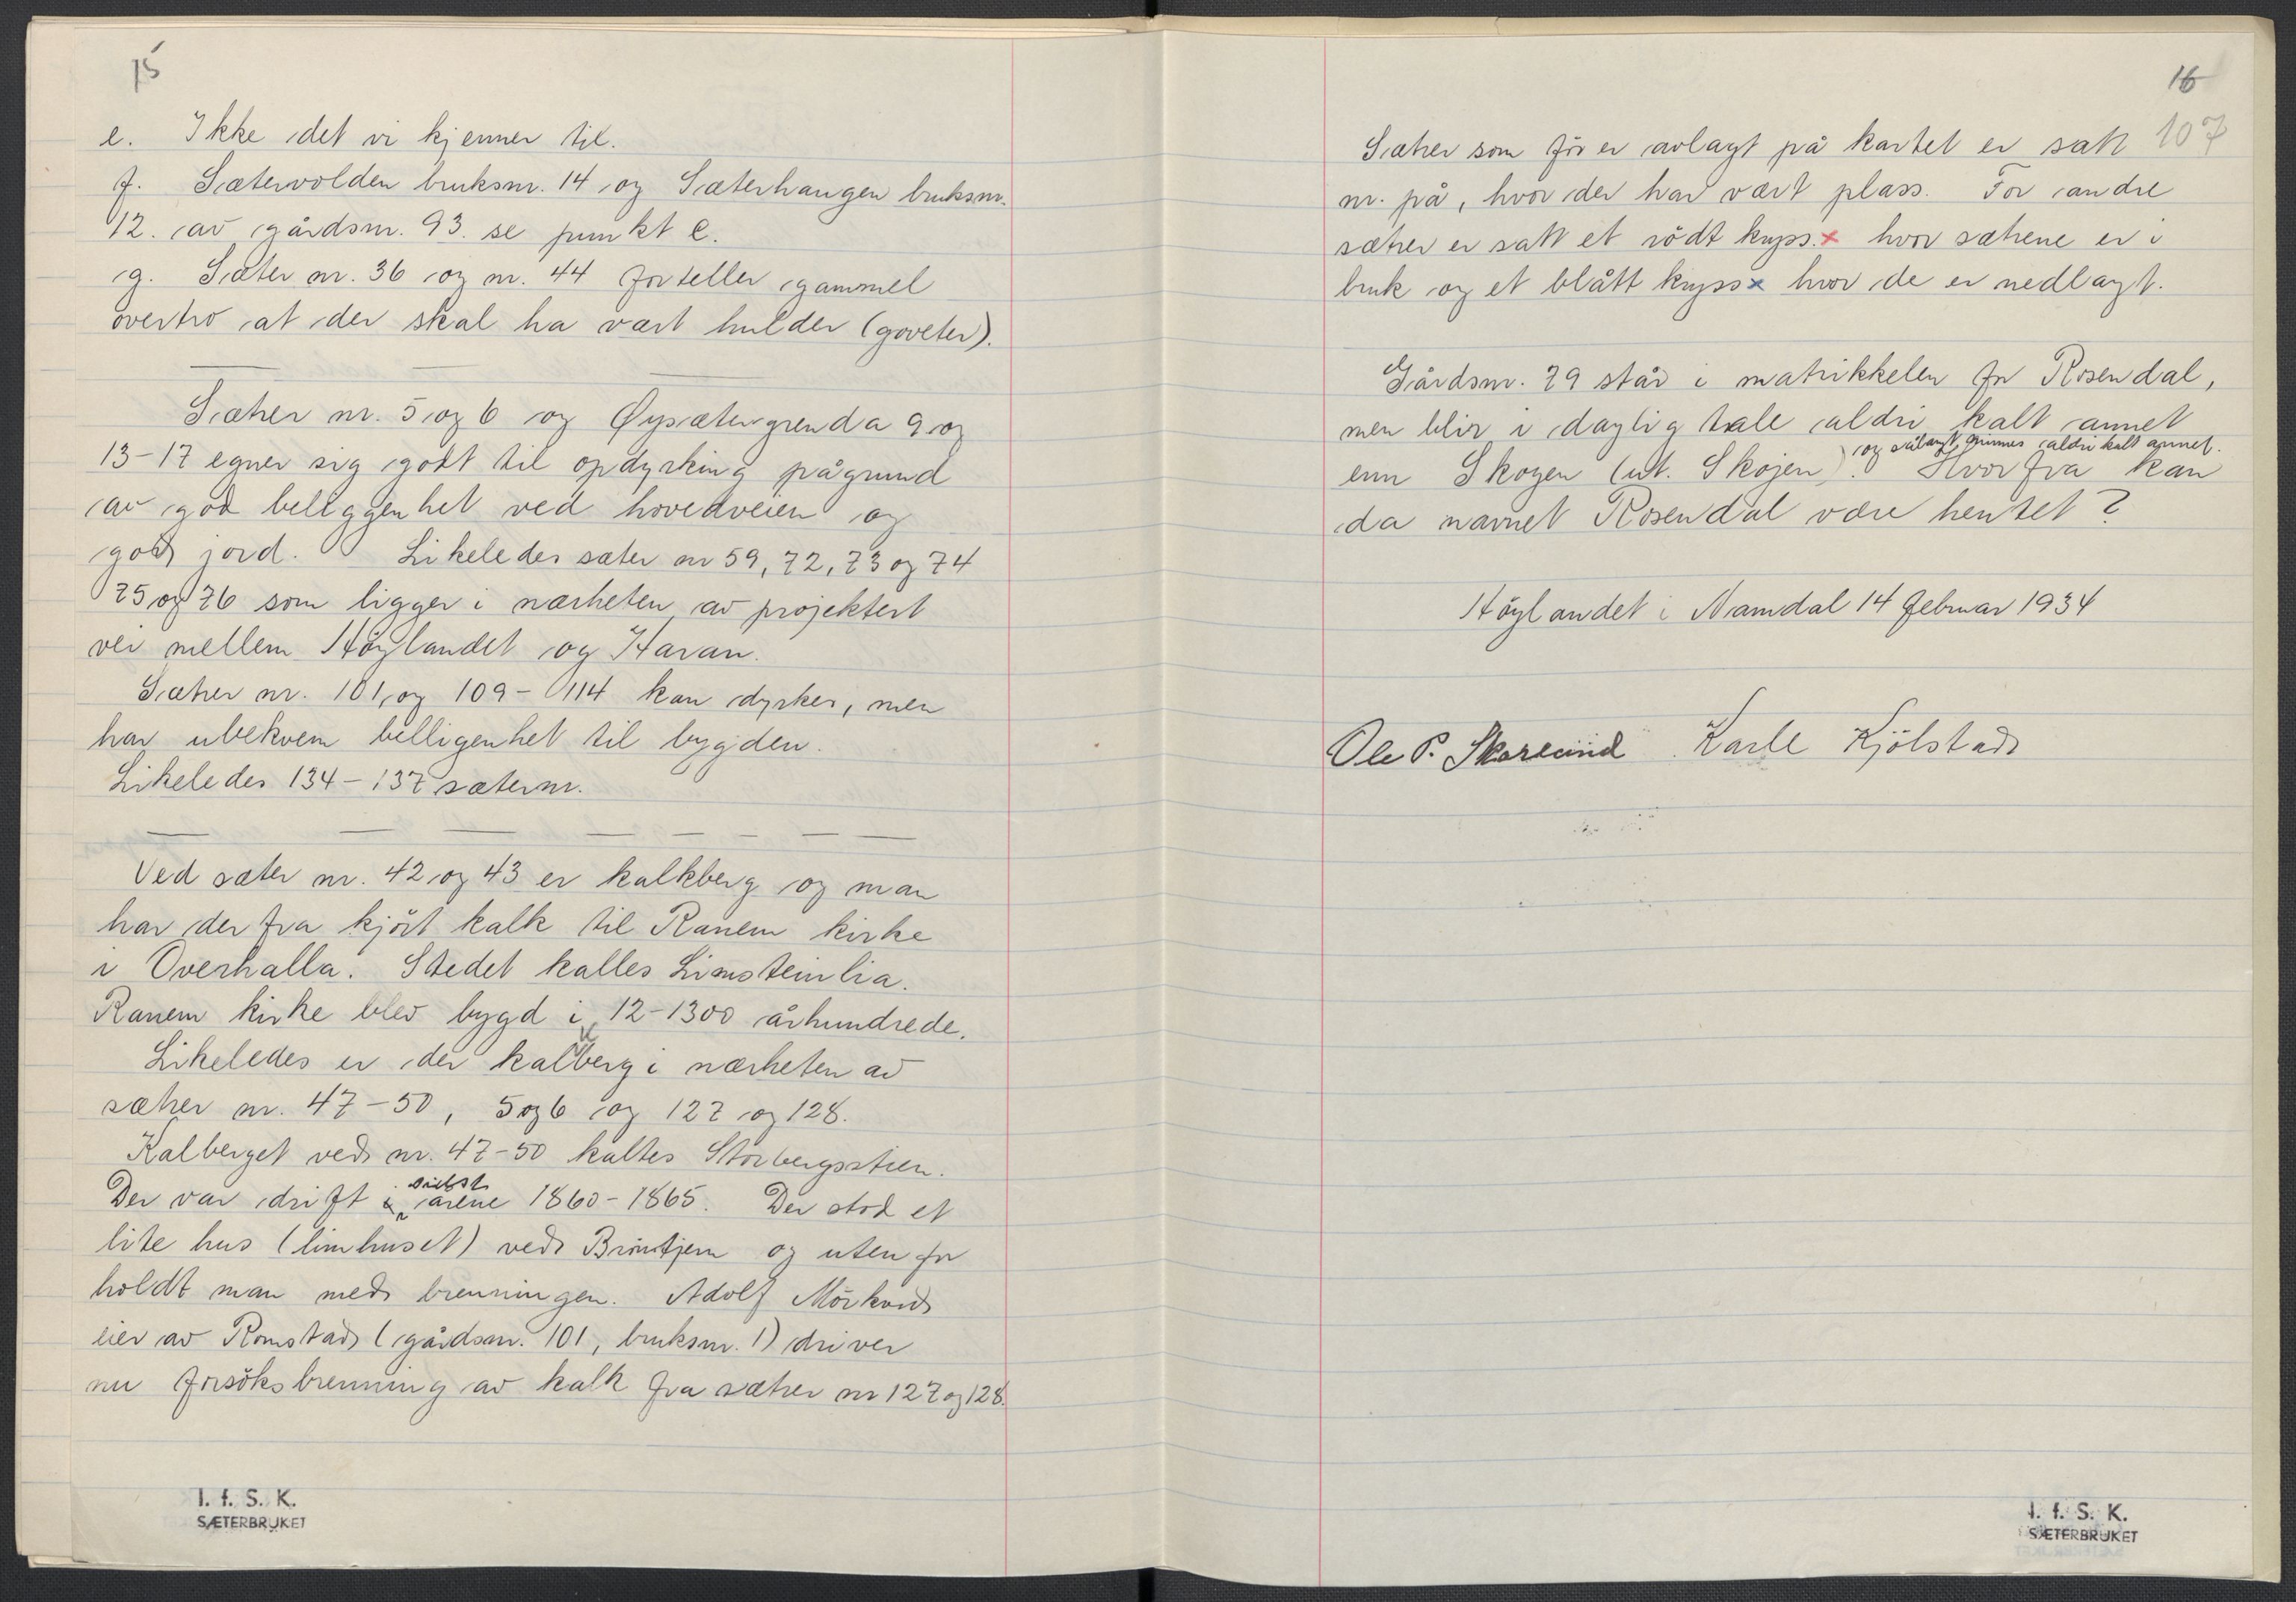 15
e. Ikke det vi kjenner til.
f. Sætervolden bruksnr. 14 og Sæterhaugen bruksnr.
12. av gårdsnr. 93. se punkt e.
g. Sæter nr. 36 og nr. 44 forteller gammel
overtro at der skal ha vært hulder (goveter).
Sætrer nr. 5 og 6 og Øysætergrenda 9 og
13-17 egner sig godt til opdyrking på grund
av god beliggenhet ved hovedveien og
god jord. Likeledes sæter nr 59, 72, 73 og 74
75 og 76 som ligger i nærheten av projektert
vei mellem Höylandet og Haran.
Sætrer nr. 101, og 109-114 kan dyrkes, men
har ubekvem belligenhet til bygden.
Likeledes 134-137 sæternr.
Ved sæter nr. 42 og 43 er kalkberg og man
har der fra kjört kalk til Ranem kirke
i Overhalla. Stedet kalles Limsteinlia.
Ranem kirke blev bygd i 12-1300 århundrede.
Likeledes er der kalkberg i nærheten av
sætrer nr. 47-50, 5 og 6 og 127 og 128.
Kalberget ved nr. 47-50 kaltes Storbergsstien.
Der var drift i sidst årene 1860-1865. Der stod et
lite hus (limhuset) ved Brintjern og utenfor
holdt man med brenningen. Adolf Mörkved
eier av Romstad (gårdsnr. 101, bruksnr. 1) driver
nu forsöksbrenning av kalk fra sætrer nr 127 og 128.
I. f. S. K.
SÆTERBRUKET
16
107
Sætrer som för er avlagt på kartet er satt
nr. på, hvor der har vært plass. For andre
sætrer er satt et rödt kryss x hvor sætrene er i
bruk og et blått kryss x hvor de er nedlagt.
Gårdsnr. 79 står i matrikkelen for Rosendal,
men blir i daglig tale aldri kalt annet
og sålangt minnes aldri kalt annet.
enn Skogen (ut. Skojen). Hvorfra kan
da navnet Rosendal være hentet?
Höylandet i Namdal 14 februar 1934
Ole P. Skarland Karle Kjölstad
I. f. S. K.
SÆTERBRUKET